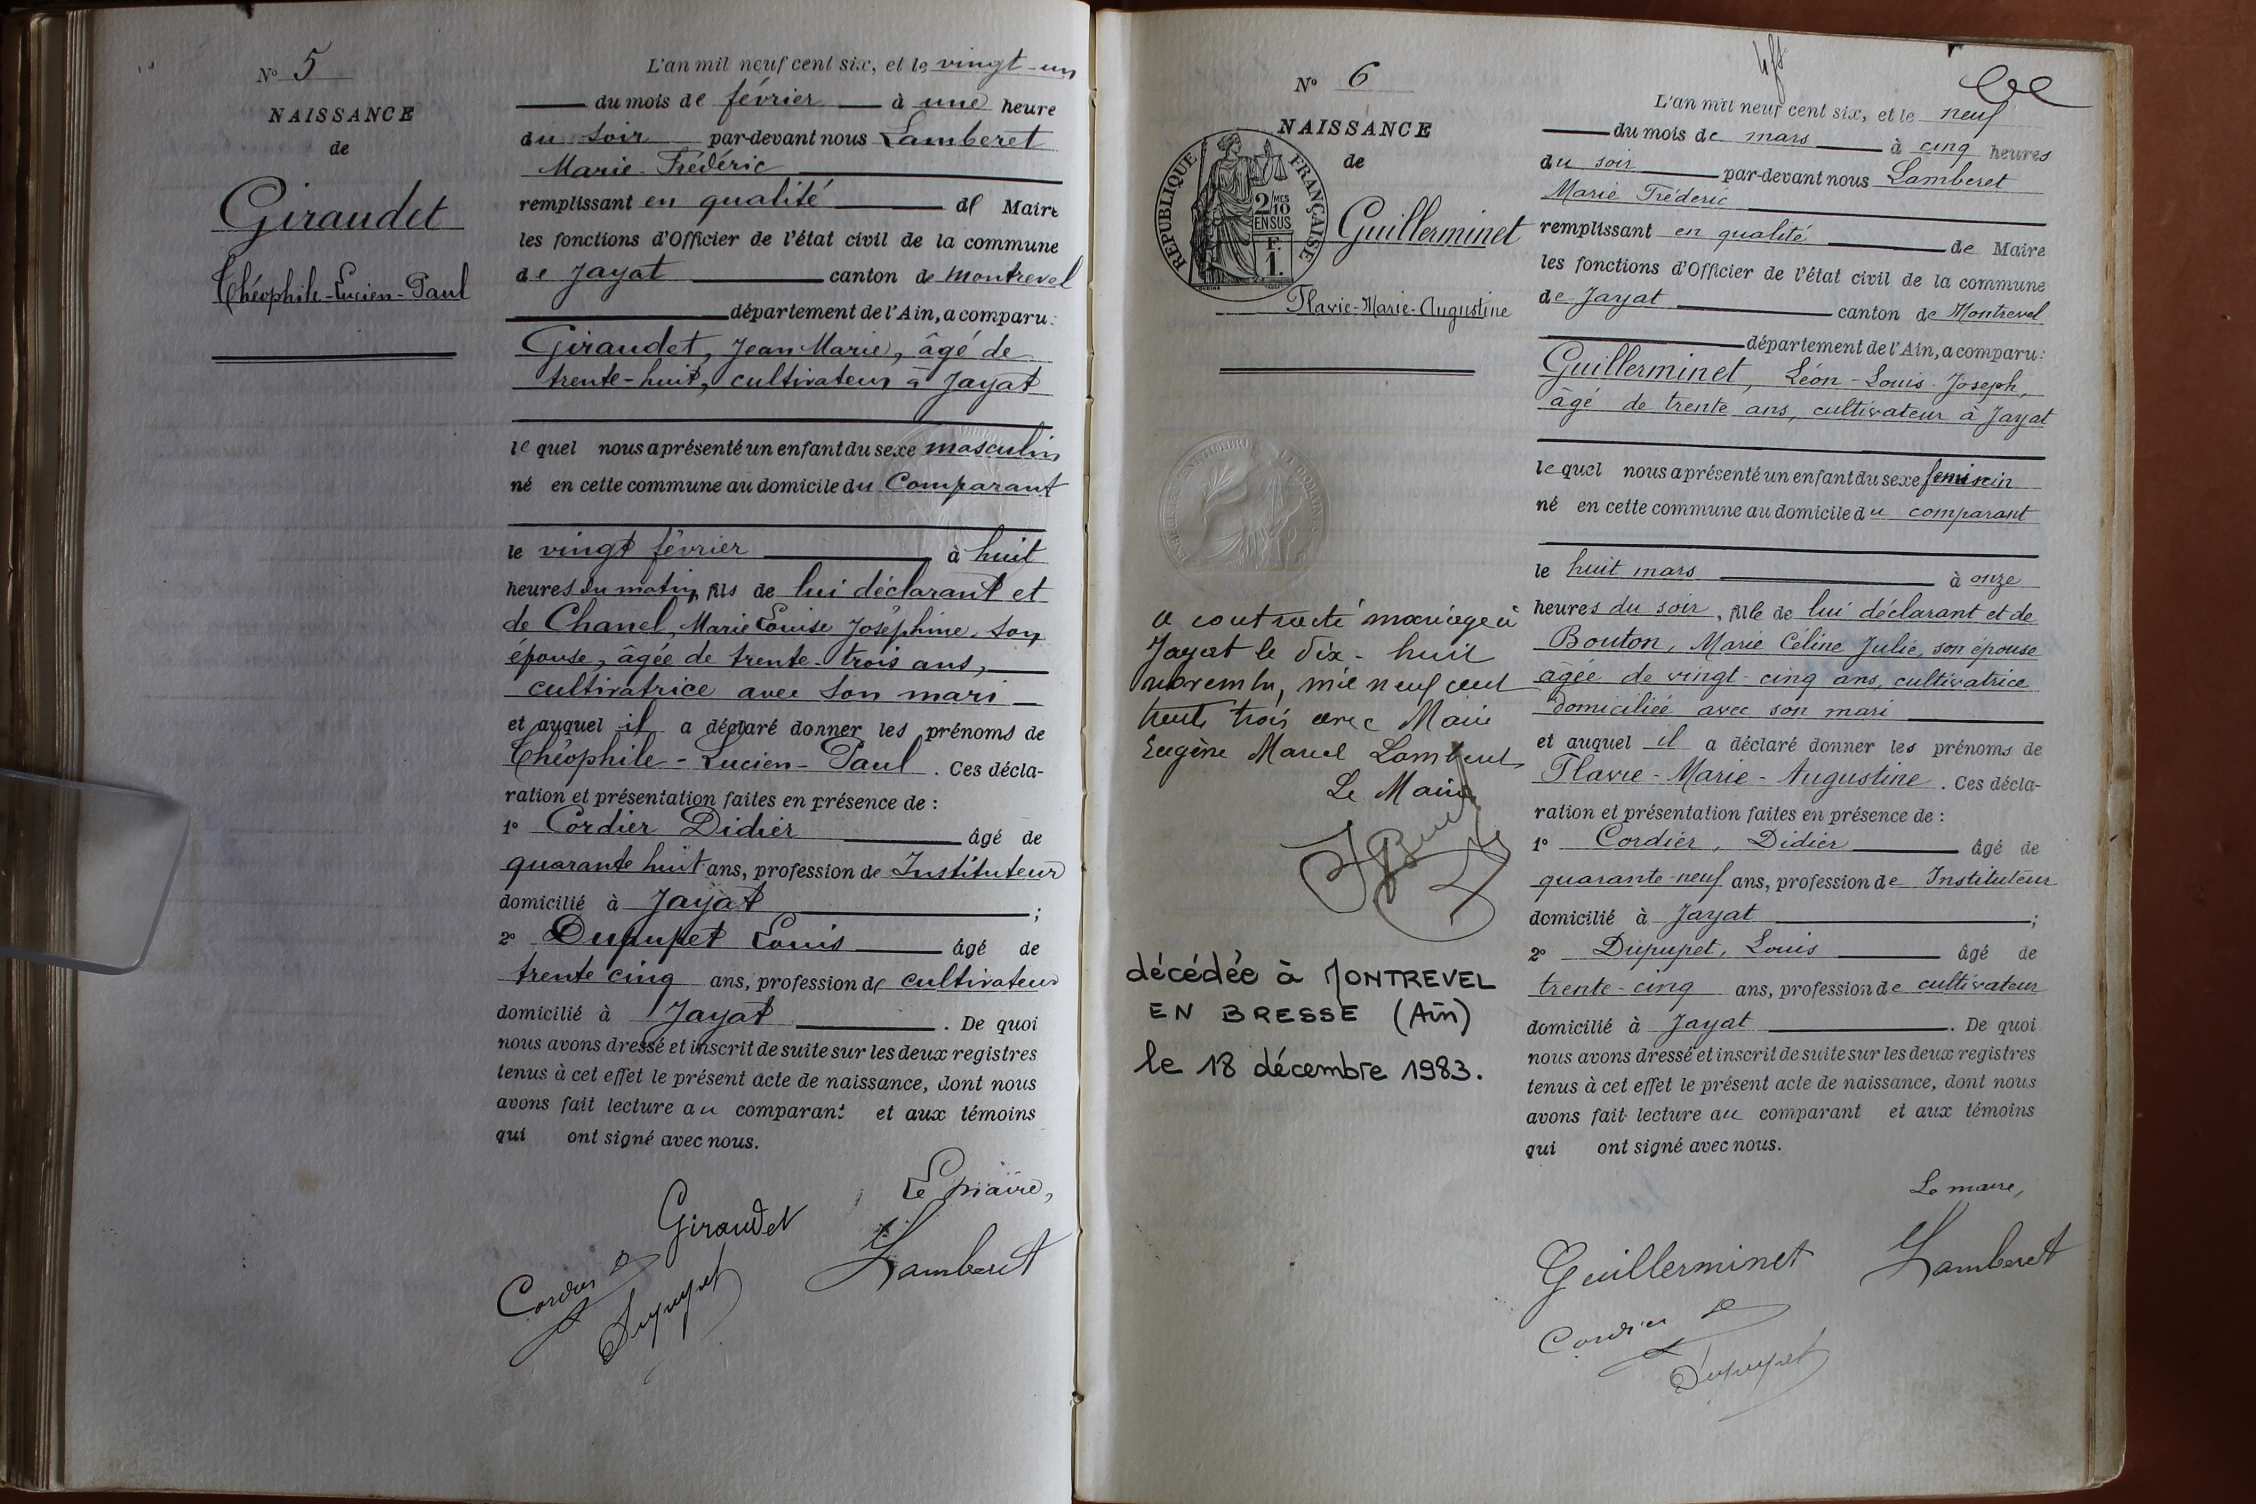 N° 5
NAISSANCE
de
Giraudet
Théophile-Lucien-Paul
L'an mil neuf cent six, et le vingt-un
du mois de février à une heure
du soir par-devant nous Lamberet
Marie-Frédéric
remplissant en qualité de Maire
les fonctions d'Officier de l'état civil de la commune
de Jayat canton de Montrevel
département de l'Ain, a comparu:
Giraudet, Jean Marie, âgé de
trente-huit, cultivateur à Jayat
lequel nous a présenté un enfant du sexe masculin
né en cette commune au domicile du Comparant
le vingt février à huit
heures du matin, fils de lui déclarant et
de Chanel, Marie Louise Joséphine, son
épouse, âgée de trente-trois ans,
cultivatrice avec son mari
et auquel il a déclaré donner les prénoms de
Théophile-Lucien-Paul. Ces décla-
ration et présentation faites en présence de :
1° Cordier Didier âgé de
quarante huit ans, profession de Instituteur
domicilié à Jayat ;
2° Dupupet Louis âgé de
trente cinq ans, profession de cultivateur
domicilié à Jayat. De quoi
nous avons dressé et inscrit de suite sur les deux registres
tenus à cet effet le présent acte de naissance, dont nous
avons fait lecture au comparant et aux témoins
qui ont signé avec nous.
Le maire,
Giraudet
Lamberet
Cordier D
Dupupet
N° 6
NAISSANCE
de
REPUBLIQUE FRANÇAISE
2/10 MES
EN SUS
F.
1.
Guillerminet
Flavie-Marie-Augustine
a contracté mariage à
Jayat le dix-huit
novembre, mil neuf cent
trente trois avec Marie
Eugène Marcel Lamberet
Le Maire
décédée à MONTREVEL
EN BRESSE (Ain)
le 18 décembre 1983.
L'an mil neuf cent six, et le neuf
du mois de mars à cinq heures
du soir par-devant nous Lamberet
Marie Fréderic
remplissant en qualité de Maire
les fonctions d'Officier de l'état civil de la commune
de Jayat canton de Montrevel
département de l'Ain, a comparu:
Guillerminet, Léon-Louis-Joseph,
âgé de trente ans, cultivateur à Jayat
lequel nous a présenté un enfant du sexe feminin
né en cette commune au domicile du comparant
le huit mars à onze
heures du soir, fille de lui déclarant et de
Bouton, Marie Céline Julie, son épouse
âgée de vingt-cinq ans, cultivatrice
domiciliée avec son mari
et auquel il a déclaré donner les prénoms de
Flavie-Marie-Augustine. Ces décla-
ration et présentation faites en présence de :
1° Cordier, Didier âgé de
quarante-neuf ans, profession de Instituteur
domicilié à Jayat ;
2° Dupupet, Louis âgé de
trente-cinq ans, profession de cultivateur
domicilié à Jayat. De quoi
nous avons dressé et inscrit de suite sur les deux registres
tenus à cet effet le présent acte de naissance, dont nous
avons fait lecture au comparant et aux témoins
qui ont signé avec nous.
Le maire,
Guillerminet
Lamberet
Cordier D
Dupupet